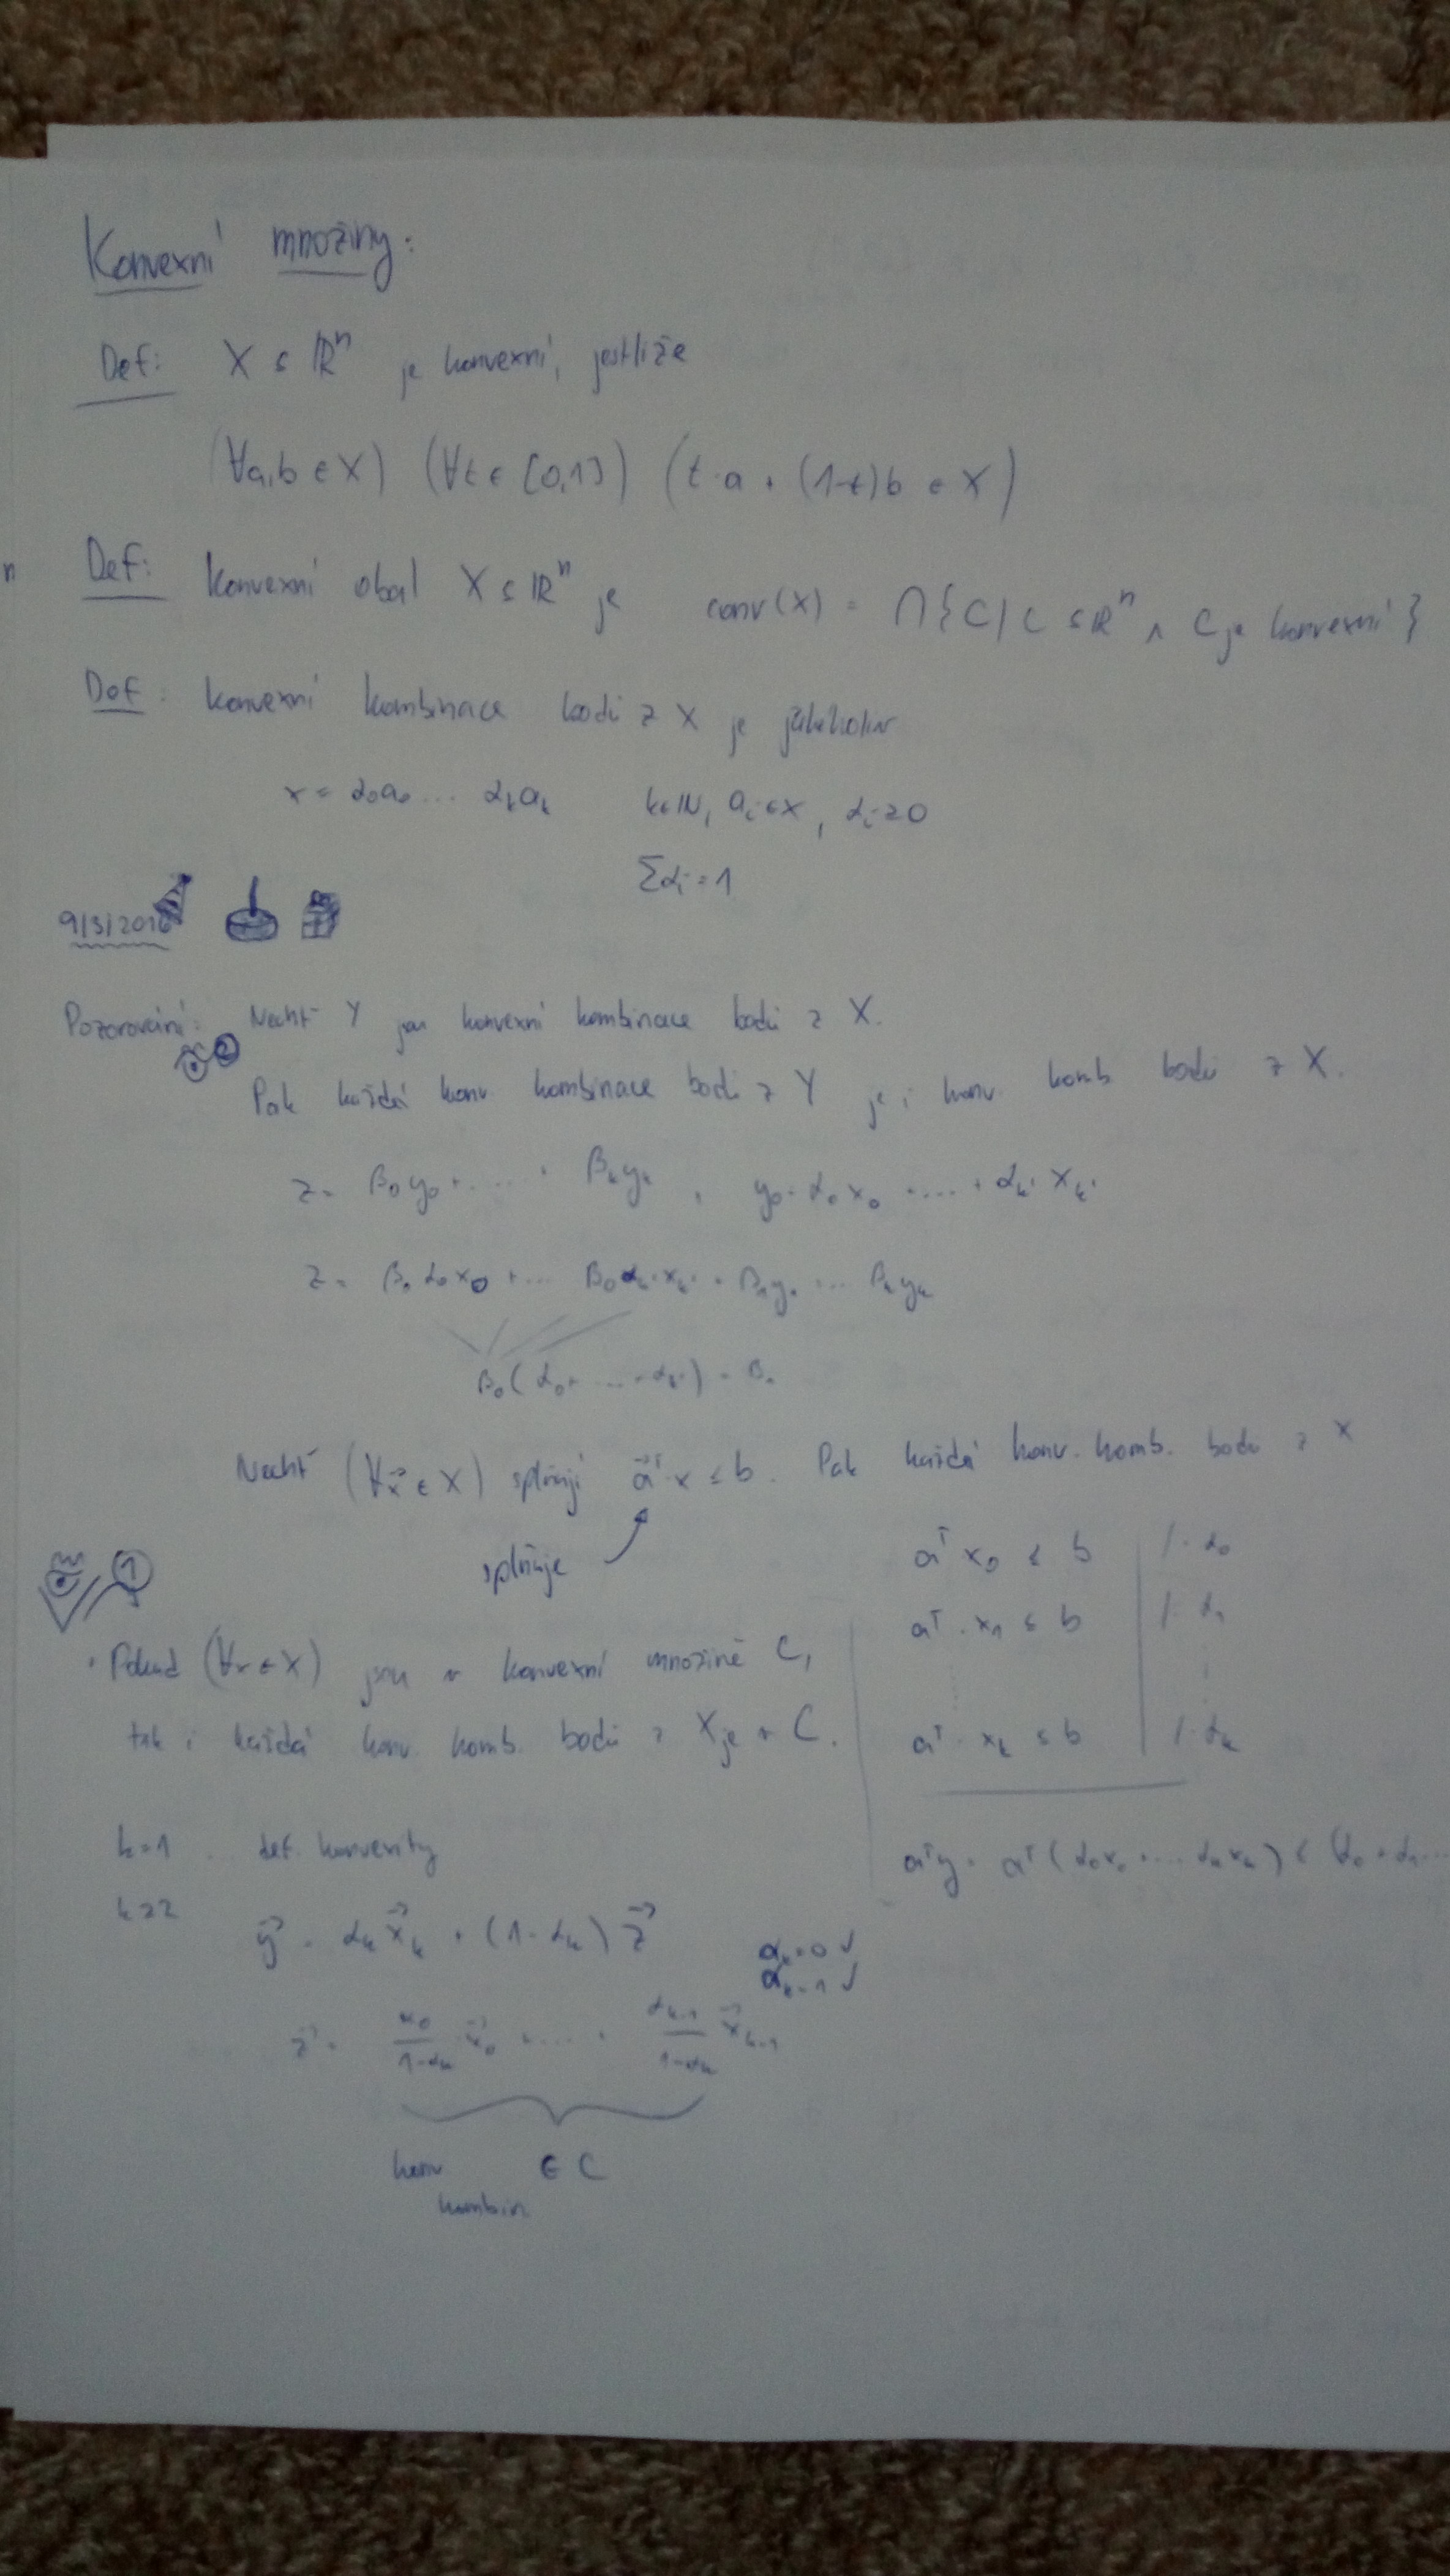 Konvexní množiny:
Def: X ⊆ ℝⁿ je konvexní, jestliže
(∀a,b ∈ X) (∀t ∈ [0,1]) (t·a + (1-t)b ∈ X)
n
Def: Konvexní obal X ⊆ ℝⁿ je conv(X) = ⋂{C | C ⊆ ℝⁿ ∧ C je konvexní}
Def: konvexní kombinace bodů z X je jakákoliv
x = α₀a₀ ... αₖaₖ k∈ℕ, aᵢ∈X, αᵢ≥0
Σαᵢ=1
9/3/2016
Pozorování: Nechť Y jsou konvexní kombinace bodů z X.
2
Pak každá konv. kombinace bodů z Y je i konv. komb. bodů z X.
z = β₀y₀ + ..... + βₖyₖ , y₀ = α₀x₀ + .... + αₖ' xₖ'
z = β₀α₀x₀ + ... β₀αₖ'xₖ' + β₁y₁ ... βₖyₖ
β₀(α₀+ ... + αₖ') = β₀
Nechť (∀x⃗ ∈ X) splňují a⃗ᵀx ≤ b. Pak každá konv. komb. bodů z X
splňuje
1
aᵀ x₀ ≤ b | /·α₀
aᵀ·x₁ ≤ b | /·α₁
aᵀ·xₖ ≤ b | /·αₖ
aᵀy = aᵀ(α₀x₀ + ... αₖxₖ) ≤ (α₀ + α₁...
· Pokud (∀x ∈ X) jsou v konvexní množině C,
tak i každá konv. komb. bodů z X je v C.
k=1 def. konvexity
k≥2
y⃗ = αₖx⃗ₖ + (1-αₖ) z⃗
αₖ=0 ✓
αₖ=1 ✓
z⃗ = α₀/(1-αₖ) x⃗₀ + .... + αₖ₋₁/(1-αₖ) x⃗ₖ₋₁
konv ∈ C
kombin